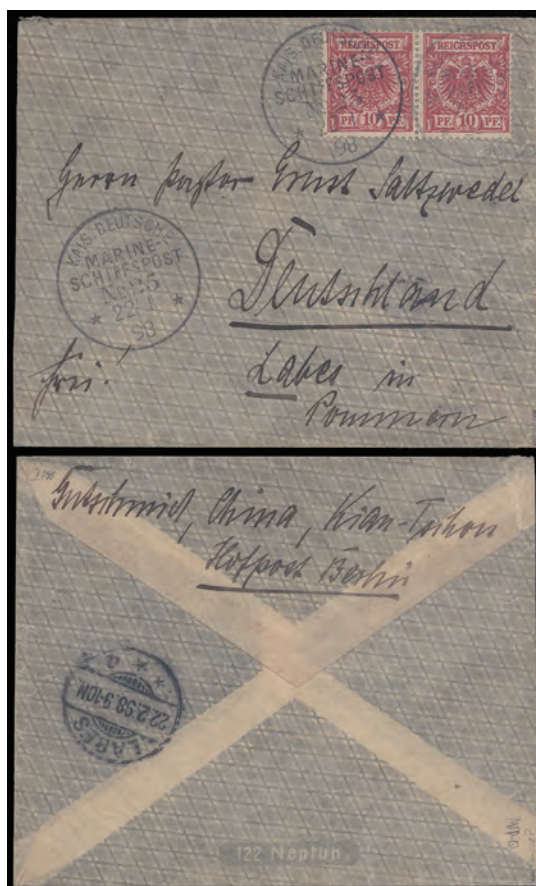 KAIS. DEUTSCHE
MARINE-
SCHIFFSPOST
98
REICHSPOST REICHSPOST
PF 10 PF. PF 10 PF.
Herrn Pastor Ernst Saltzwedel
KAIS. DEUTSCHE
MARINE-
SCHIFFSPOST
No 25
22 1
98
Deutschland
frei!
Labes in
Pommern
Gutschmid, China, Kiau-Tschou
Hofpost Berlin
22.2.98.9-10N
LABES
a
122 Neptun